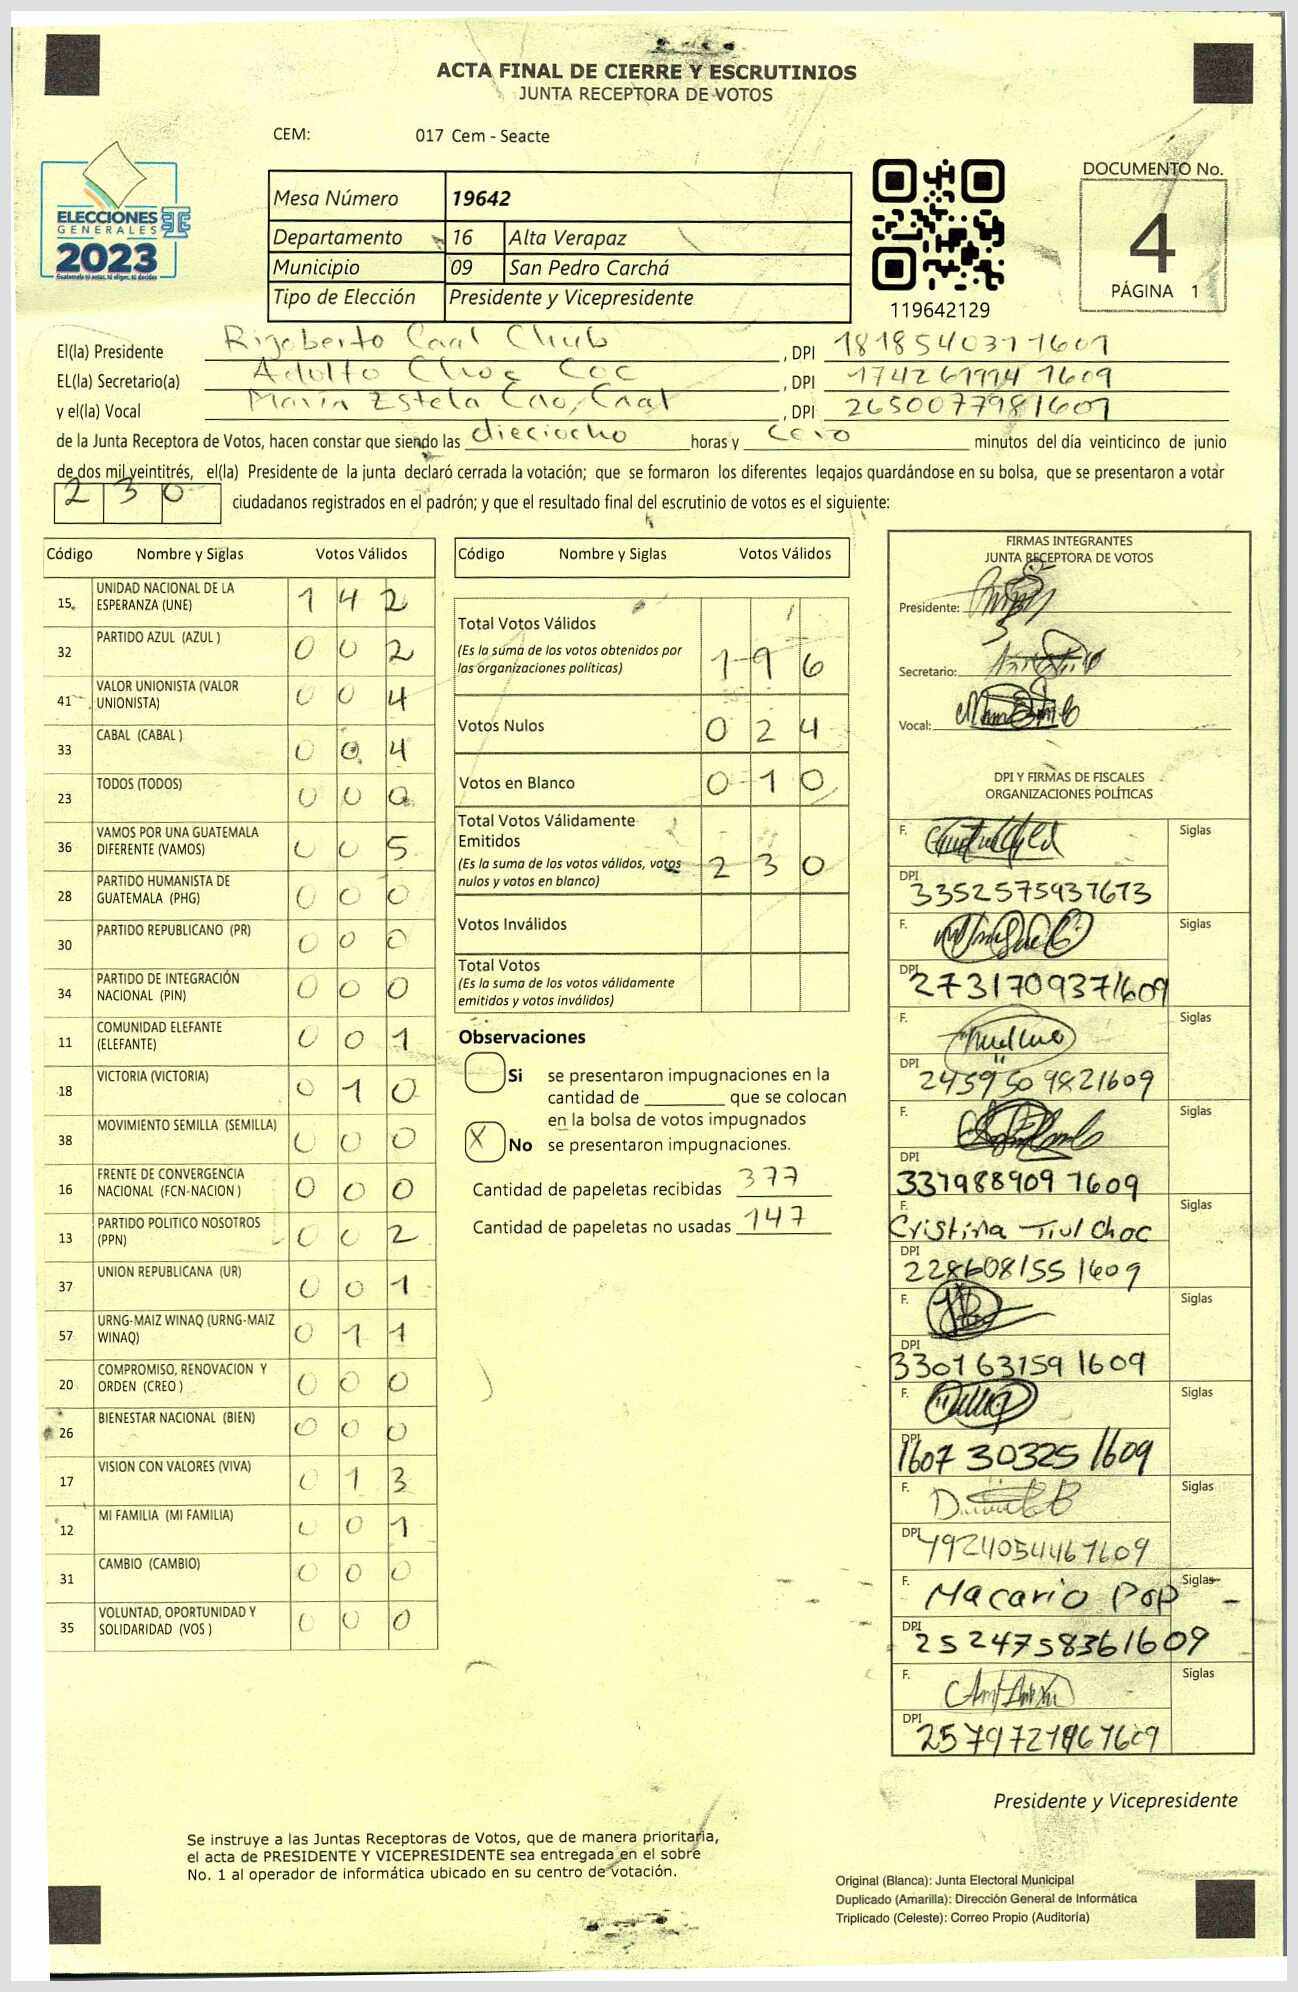 ACTA FINAL DE CIERRE Y ESCRUTINIOS
JUNTA RECEPTORA DE VOTOS
CEM: 017 Cem - Seacte
ELECCIONES
GENERALES
2023
Mesa Número 19642
Departamento 16 Alta Verapaz
Municipio 09 San Pedro Carchá
Tipo de Elección Presidente y Vicepresidente
119642129
DOCUMENTO No.
4
PÁGINA 1
El(la) Presidente Rigoberto Caal Chub , DPI 1818540311609
EL(la) Secretario(a) Adolfo Choc Coc , DPI
y el(la) Vocal María Estela Cao, Caal , DPI 2650077981609
de la Junta Receptora de Votos, hacen constar que siendo las dieciocho horas y cero minutos del día veinticinco de junio
de dos mil veintitrés, el(la) Presidente de la junta declaró cerrada la votación; que se formaron los diferentes legajos guardándose en su bolsa, que se presentaron a votar
230 ciudadanos registrados en el padrón; y que el resultado final del escrutinio de votos es el siguiente:
Código Nombre y Siglas Votos Válidos
15 UNIDAD NACIONAL DE LA ESPERANZA (UNE) 1 4 2
32 PARTIDO AZUL (AZUL ) 0 0 2
41 VALOR UNIONISTA (VALOR UNIONISTA) 0 0 4
33 CABAL (CABAL ) 0 0 4
23 TODOS (TODOS) 0 0 0
36 VAMOS POR UNA GUATEMALA DIFERENTE (VAMOS) 0 0 5
28 PARTIDO HUMANISTA DE GUATEMALA (PHG) 0 0 0
30 PARTIDO REPUBLICANO (PR) 0 0 0
34 PARTIDO DE INTEGRACIÓN NACIONAL (PIN) 0 0 0
11 COMUNIDAD ELEFANTE (ELEFANTE) 0 0 1
18 VICTORIA (VICTORIA) 0 1 0
38 MOVIMIENTO SEMILLA (SEMILLA) 0 0 0
16 FRENTE DE CONVERGENCIA NACIONAL (FCN-NACION ) 0 0 0
13 PARTIDO POLITICO NOSOTROS (PPN) 0 0 2
37 UNION REPUBLICANA (UR) 0 0 1
57 URNG-MAIZ WINAQ (URNG-MAIZ WINAQ) 0 1 1
20 COMPROMISO, RENOVACION Y ORDEN (CREO ) 0 0 0
26 BIENESTAR NACIONAL (BIEN) 0 0 0
17 VISION CON VALORES (VIVA) 0 1 3
12 MI FAMILIA (MI FAMILIA) 0 0 1
31 CAMBIO (CAMBIO) 0 0 0
35 VOLUNTAD, OPORTUNIDAD Y SOLIDARIDAD (VOS ) 0 0 0
Código Nombre y Siglas Votos Válidos
Total Votos Válidos 1 9 6
(Es la suma de los votos obtenidos por
las organizaciones políticas)
Votos Nulos 0 2 4
Votos en Blanco 0 1 0
Total Votos Válidamente
Emitidos 2 3 0
(Es la suma de los votos válidos, votos
nulos y votos en blanco)
Votos Inválidos
Total Votos
(Es la suma de los votos válidamente
emitidos y votos inválidos)
Observaciones
Si se presentaron impugnaciones en la
cantidad de ________ que se colocan
en la bolsa de votos impugnados
X No se presentaron impugnaciones.
Cantidad de papeletas recibidas 377
Cantidad de papeletas no usadas 147
FIRMAS INTEGRANTES
JUNTA RECEPTORA DE VOTOS
Presidente:
Secretario:
Vocal:
DPI Y FIRMAS DE FISCALES
ORGANIZACIONES POLÍTICAS
F. Siglas
DPI 3352575937613
F. Siglas
DPI 2731709371609
F. Siglas
DPI 2459509821609
F. Siglas
DPI 3379889091609
F. Cristina Tiul Choc Siglas
DPI 2286081551609
F. Siglas
DPI 3301631591609
F. Siglas
DPI 1607303251609
F. Siglas
DPI 1924054461609
F. Macario Pop Siglas
DPI 2524758361609
F. Siglas
DPI
Presidente y Vicepresidente
Se instruye a las Juntas Receptoras de Votos, que de manera prioritaria,
el acta de PRESIDENTE Y VICEPRESIDENTE sea entregada en el sobre
No. 1 al operador de informática ubicado en su centro de votación.
Original (Blanca): Junta Electoral Municipal
Duplicado (Amarilla): Dirección General de Informática
Triplicado (Celeste): Correo Propio (Auditoría)